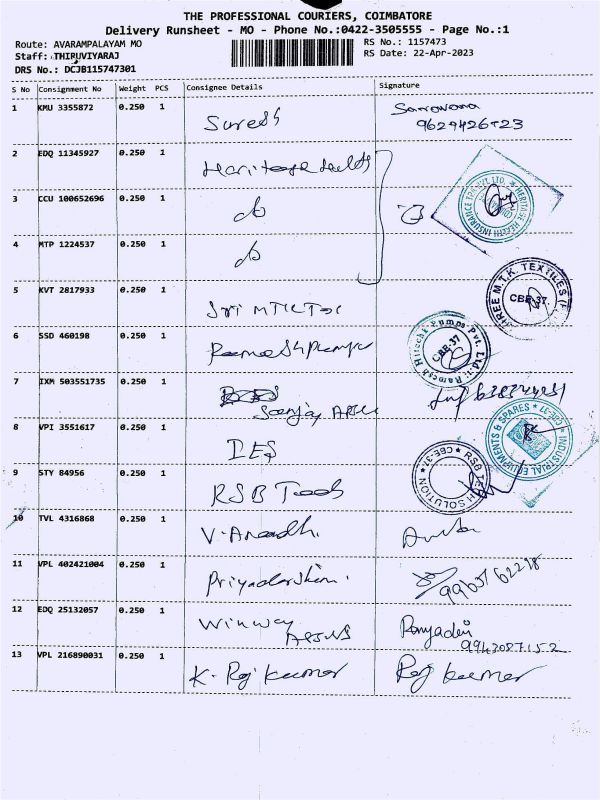 THE PROFESSIONAL COURIERS, COIMBATORE
Delivery Runsheet - MO - Phone No.:0422-3505555 - Page No.:1
Route: AVARAMPALAYAM MO
RS No.: 1157473
Staff: THIRUVIYARAJ
RS Date: 22-Apr-2023
DRS No.: DCJB115747301
S No Consignment No Weight PCS Consignee Details Signature
1 KMU 3355872 0.250 1 Suresh
2 EDQ 11345927 0.250 1
HERITAGE HEALTH INSURANCE TPA PVT. LTD.
3 CCU 100652696 0.250 1 do
4 MTP 1224537 0.250 1 do
5 KVT 2817933 0.250 1 Sri MTK Tex
SHREE M.T.K. TEXTILES
CBE-37.
6 SSD 460198 0.250 1 Ramesh
Ramesh Hitech Pumps Pvt. Ltd.
CBE-37
7 IXM 503551735 0.250 1
Sanjay
8 VPI 3551617 0.250 1 IES
INDUSTRIAL EQUIPMENTS & SPARES * CBE-37 *
9 STY 84956 0.250 1 RSB Tools
RSB TECH SOLUTION * CBE-37 *
10 TVL 4316868 0.250 1 V. Anandh.
11 VPL 402421004 0.250 1 Priyadarshini.
12 EDQ 25132057 0.250 1 Winway
9943087152
13 VPL 216890031 0.250 1 K. Raj kumar Raj kumar